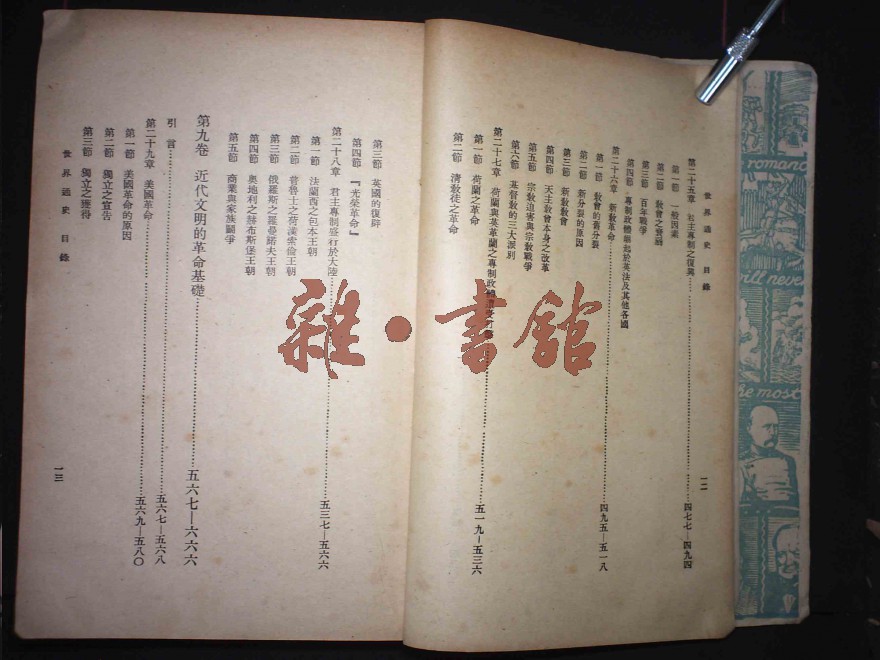 世界通史 目錄
第二十五章 君主專制之復興……四七七—四九四
第一節 一般因素
第二節 教會之衰弱
第三節 百年戰爭
第四節 專制政體興起於英法及其他各國
第二十六章 新教革命……四九五—五一八
第一節 教會的舊分裂
第二節 新分裂的原因
第三節 新教教會
第四節 天主教會本身之改革
第五節 宗教迫害與宗教戰爭
第六節 基督教的三大派別
第二十七章 荷蘭與英革蘭之專制政體……五一九—五三六
第一節 荷蘭之革命
第二節 清教徒之革命
一二
第三節 英國的復辟
第四節 『光榮革命』
第二十八章 君主專制盛行於大陸……五三七—五六六
第一節 法蘭西之包本王朝
第二節 普魯士之荷漢索倫王朝
第三節 俄羅斯之羅曼諾夫王朝
第四節 奧地利之赫布斯堡王朝
第五節 商業與家族鬪爭
第九卷 近代文明的革命基礎……五六七—六六六
引言……五六七—五六八
第二十九章 美國革命……五六九—五八〇
第一節 美國革命的原因
第二節 獨立之宣告
第三節 獨立之獲得
世界通史 目錄
一三
雜·書館
romance
still never
the most